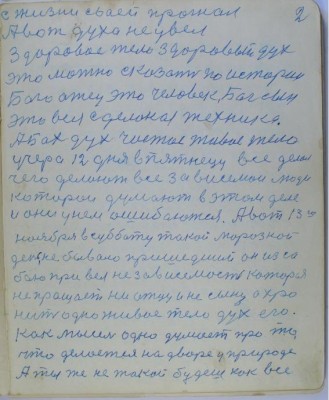 2
с жизни своей прогнал
А вот духа не увел
Здоровое тело здоровый дух
это можно сказать по истории
Бог отец это человек, Бог сын
это вся сделоная техника.
А Бог дух чистое живое тело
учера 12 дня в пятнецу все дела
чего делают все зависемои люди
которои думают в этом деле
и они у нем ошибаются. А вот 13 го
ноября в субботу такой морозной
день не бывало пришедший он из са
бою привел независемость которая
не прощает ни отцу и не сыну а хро
нит одно живое тело дух его.
Как мысем одно думает про то,
что делается на дворе у природе
А ты же не такой будеш как все